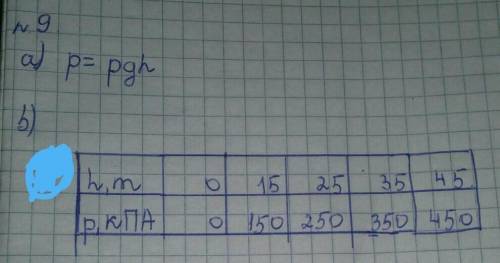 н 9
a) p = pgh
b)
h, m 0 15 25 35 45
p, кПА 0 150 250 350 450